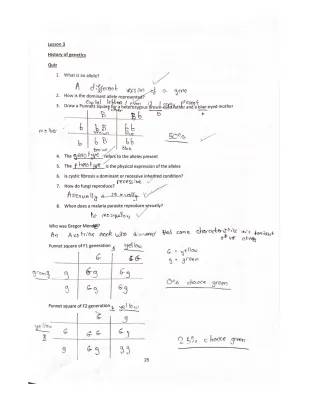 Lesson 3
History of genetics
Quiz
1. What is an allele?
A different version of a gene
2. How is the dominant allele represented?
Capital letters
3. Draw a Punnett square for a heterozygous brown eyed father and a blue eyed mother
B b
b bB bb
brown blue
b bB bb
brown blue
50%
4. The genotype refers to the alleles present
5. The phenotype is the physical expression of the alleles
6. Is cystic fibrosis a dominant or recessive inherited condition?
recessive
7. How do fungi reproduce?
Asexually
8. When does a malaria parasite reproduce sexually?
mosquitoes
Who was Gregor Mendel?
An Austrian who some characteristics
Punnet square of F1 generation yellow
G GG
green g Gg Gg
g Gg Gg
G = yellow
g = green
0% green
Punnet square of F2 generation yellow
G g
yellow G GG Gg
g Gg gg
25% green